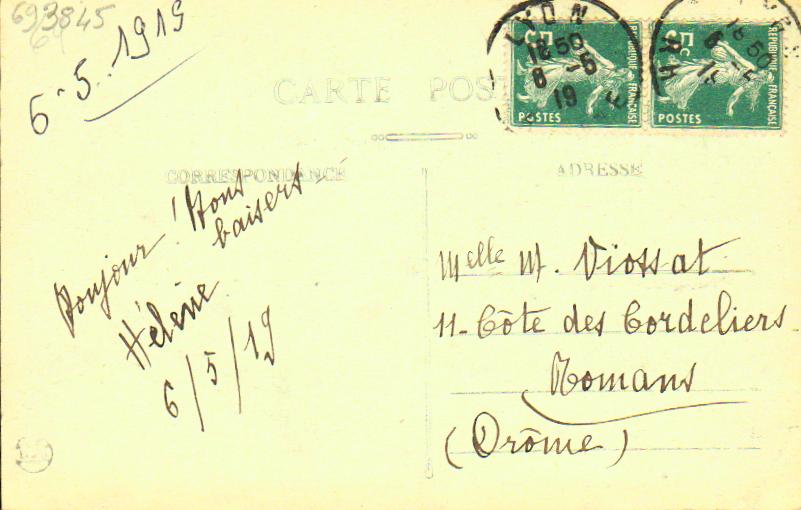 693845
6-5-1919
CARTE POS
LYON
18 50
6 -5
19
5c
REPUBLIQUE FRANÇAISE
POSTES
5c
REPUBLIQUE FRANÇAISE
POSTES
18 50
CORRESPONDANCE
ADRESSE
Bonjour ! Bons
baisers
Hélène
6/5/19
Melle M. Viossat
11-Côte des Cordeliers
Romans
(Drôme)